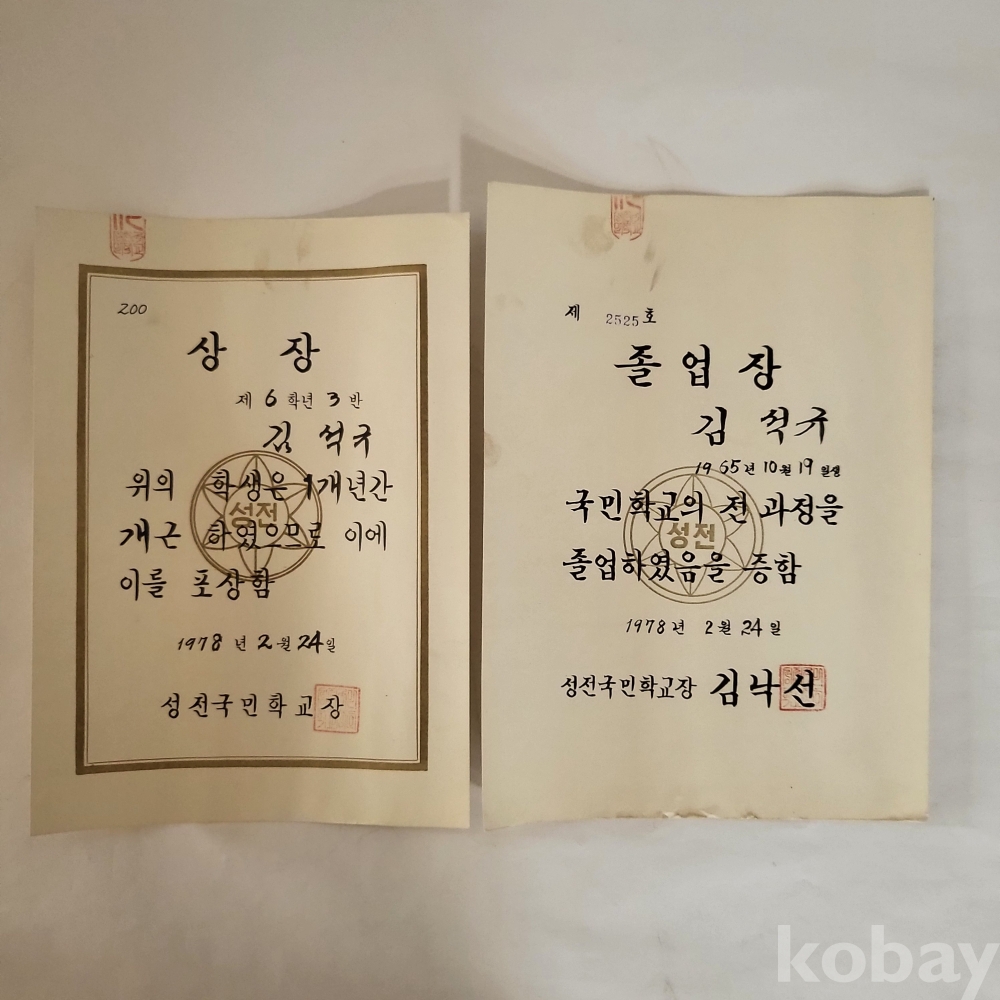 200
상 장
제 6 학년 3 반
김 석규
위의 학생은 1개년간
개근 하였으므로 이에
이를 포상함
1978 년 2 월 24 일
성전국민학교장
성전
제 2525 호
졸업장
김 석규
1965년 10월 19일생
국민학교의 전 과정을
졸업하였음을 증함
1978 년 2 월 24 일
성전국민학교장 김낙선
성전
kobay